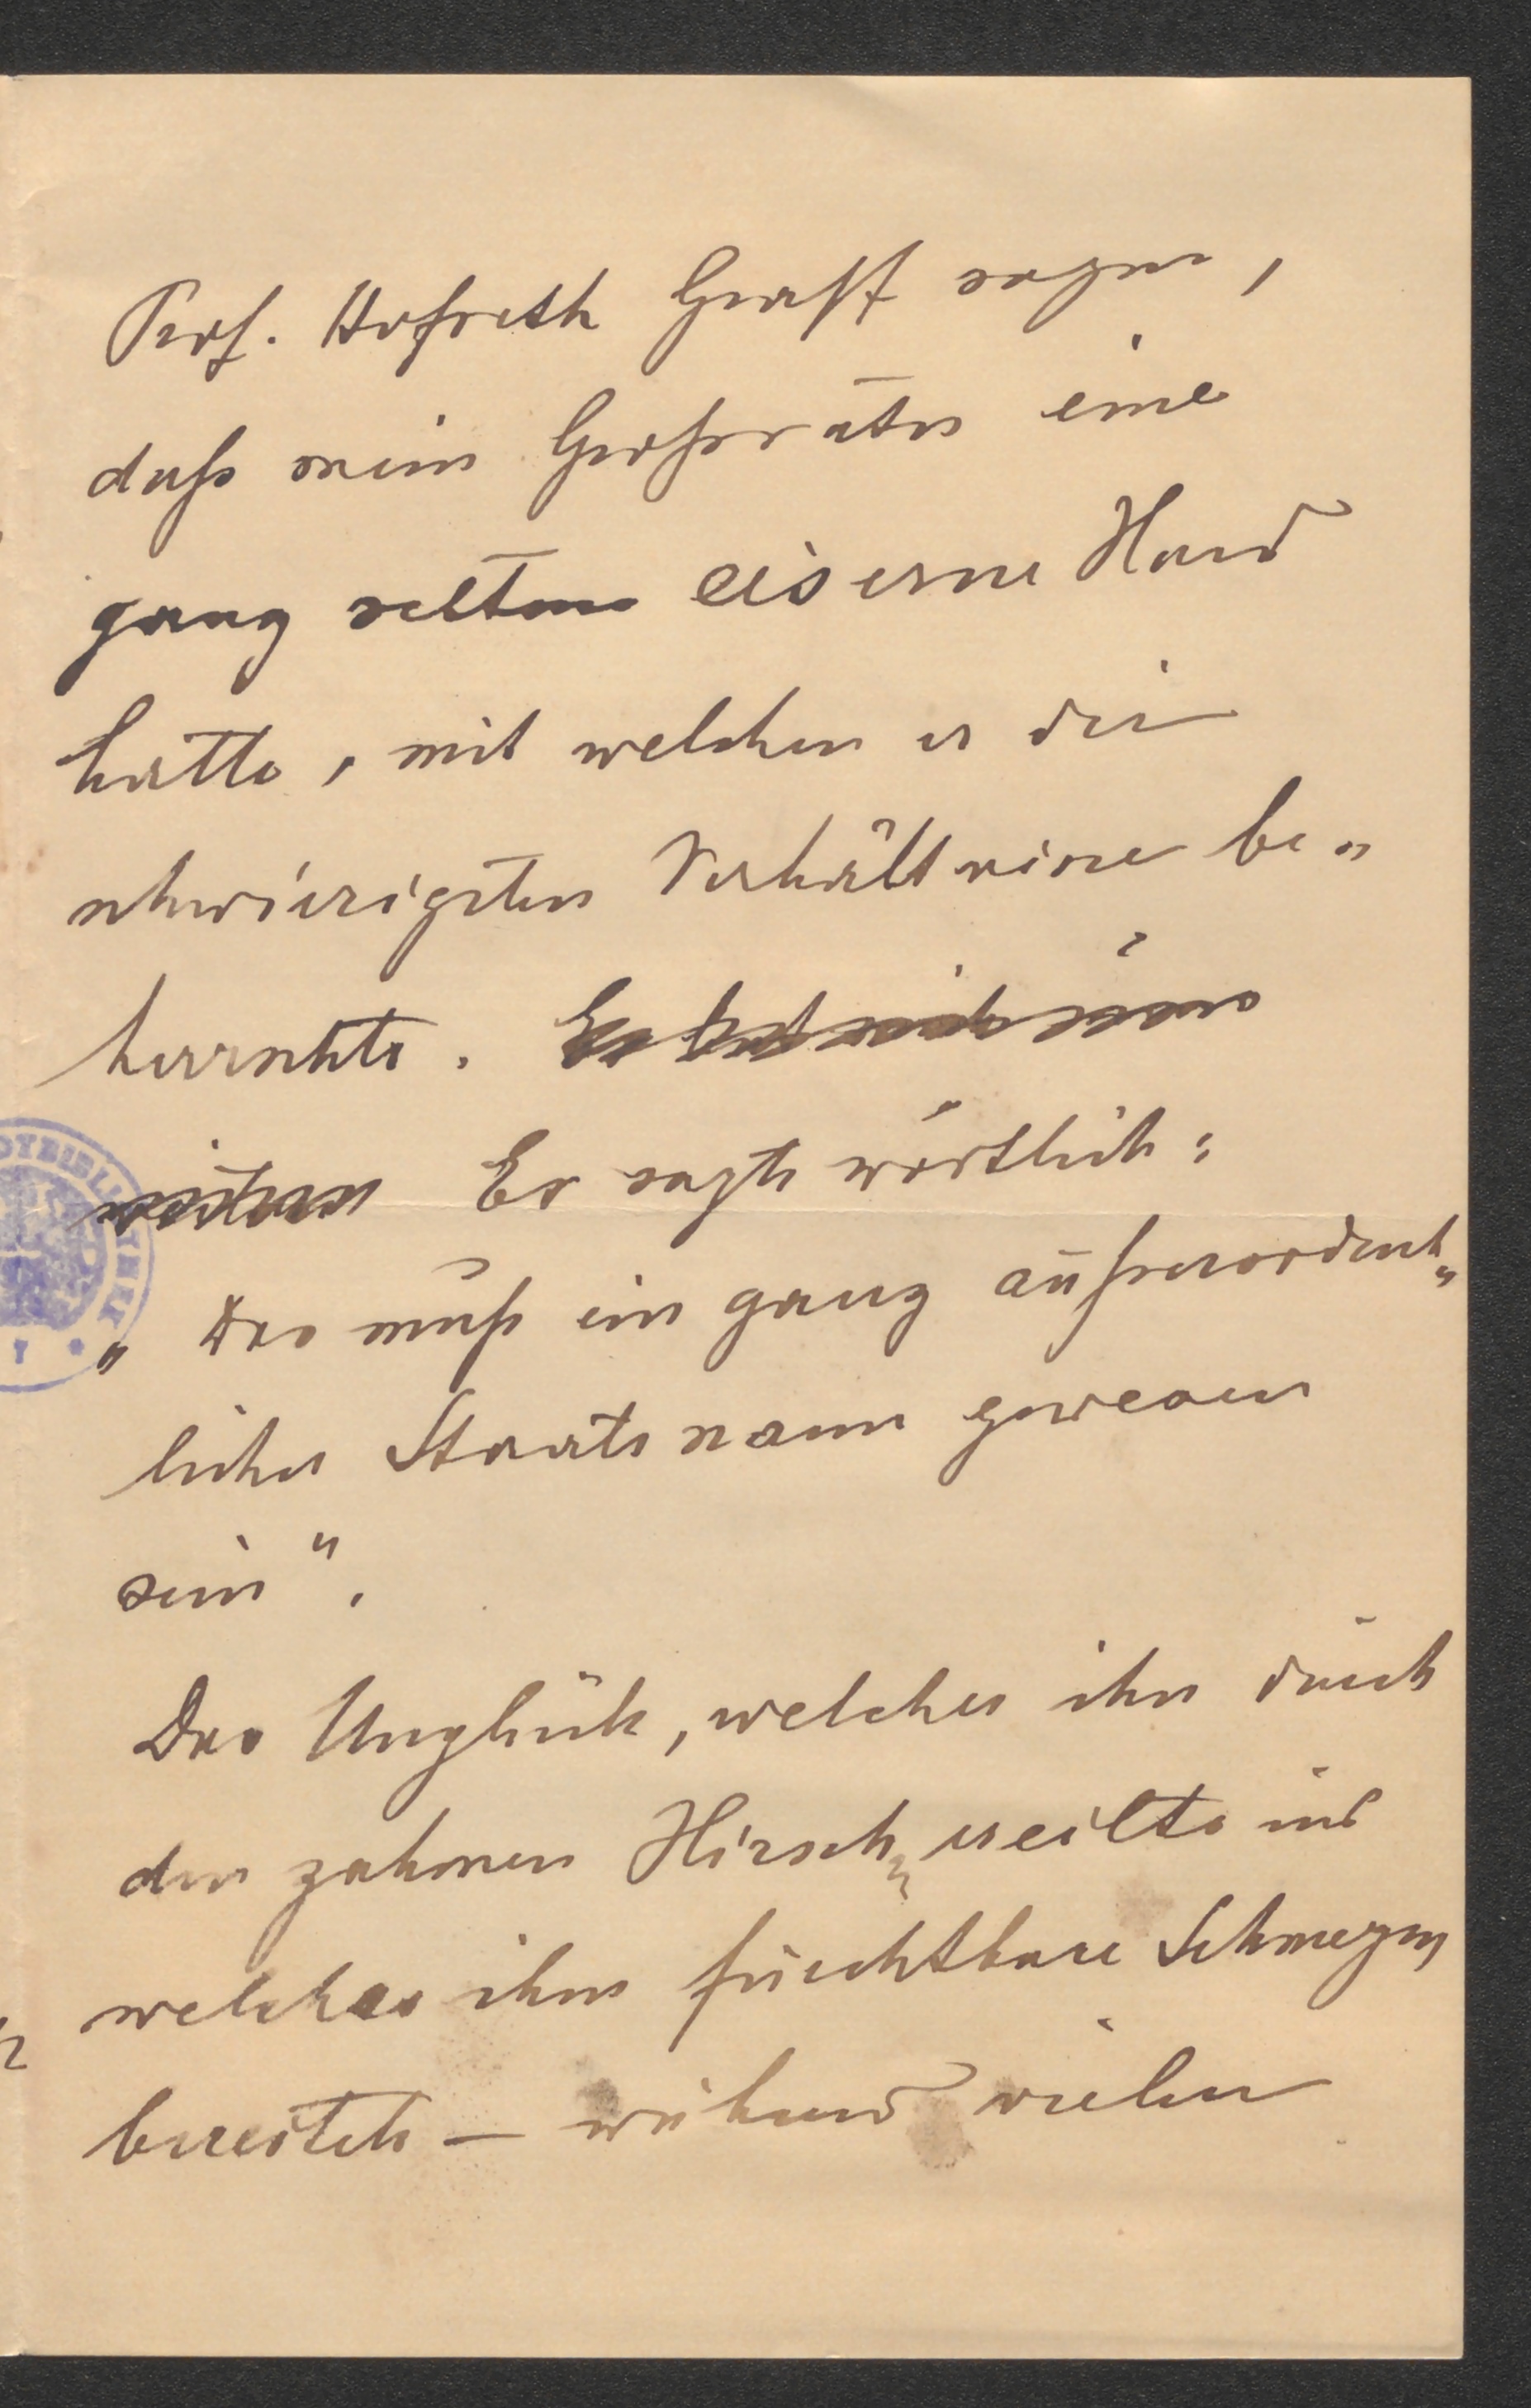 Prof. Hofrath Graff sagen,
daß mein Großvater eine
ganz seltene eiserne Hand
hatte, mit welcher er die
schwierigsten Verhältnisse be„
herrschte.
weiteren Er sagte wörtlich:
„Das muß ein ganz außerordent„
licher Staatsmann gewesen
sein".
Das Unglück, welches ihn durch
den zahmen Hirsch ereilte und
welches ihm furchtbare Schmerzen
bereitete — während vieler